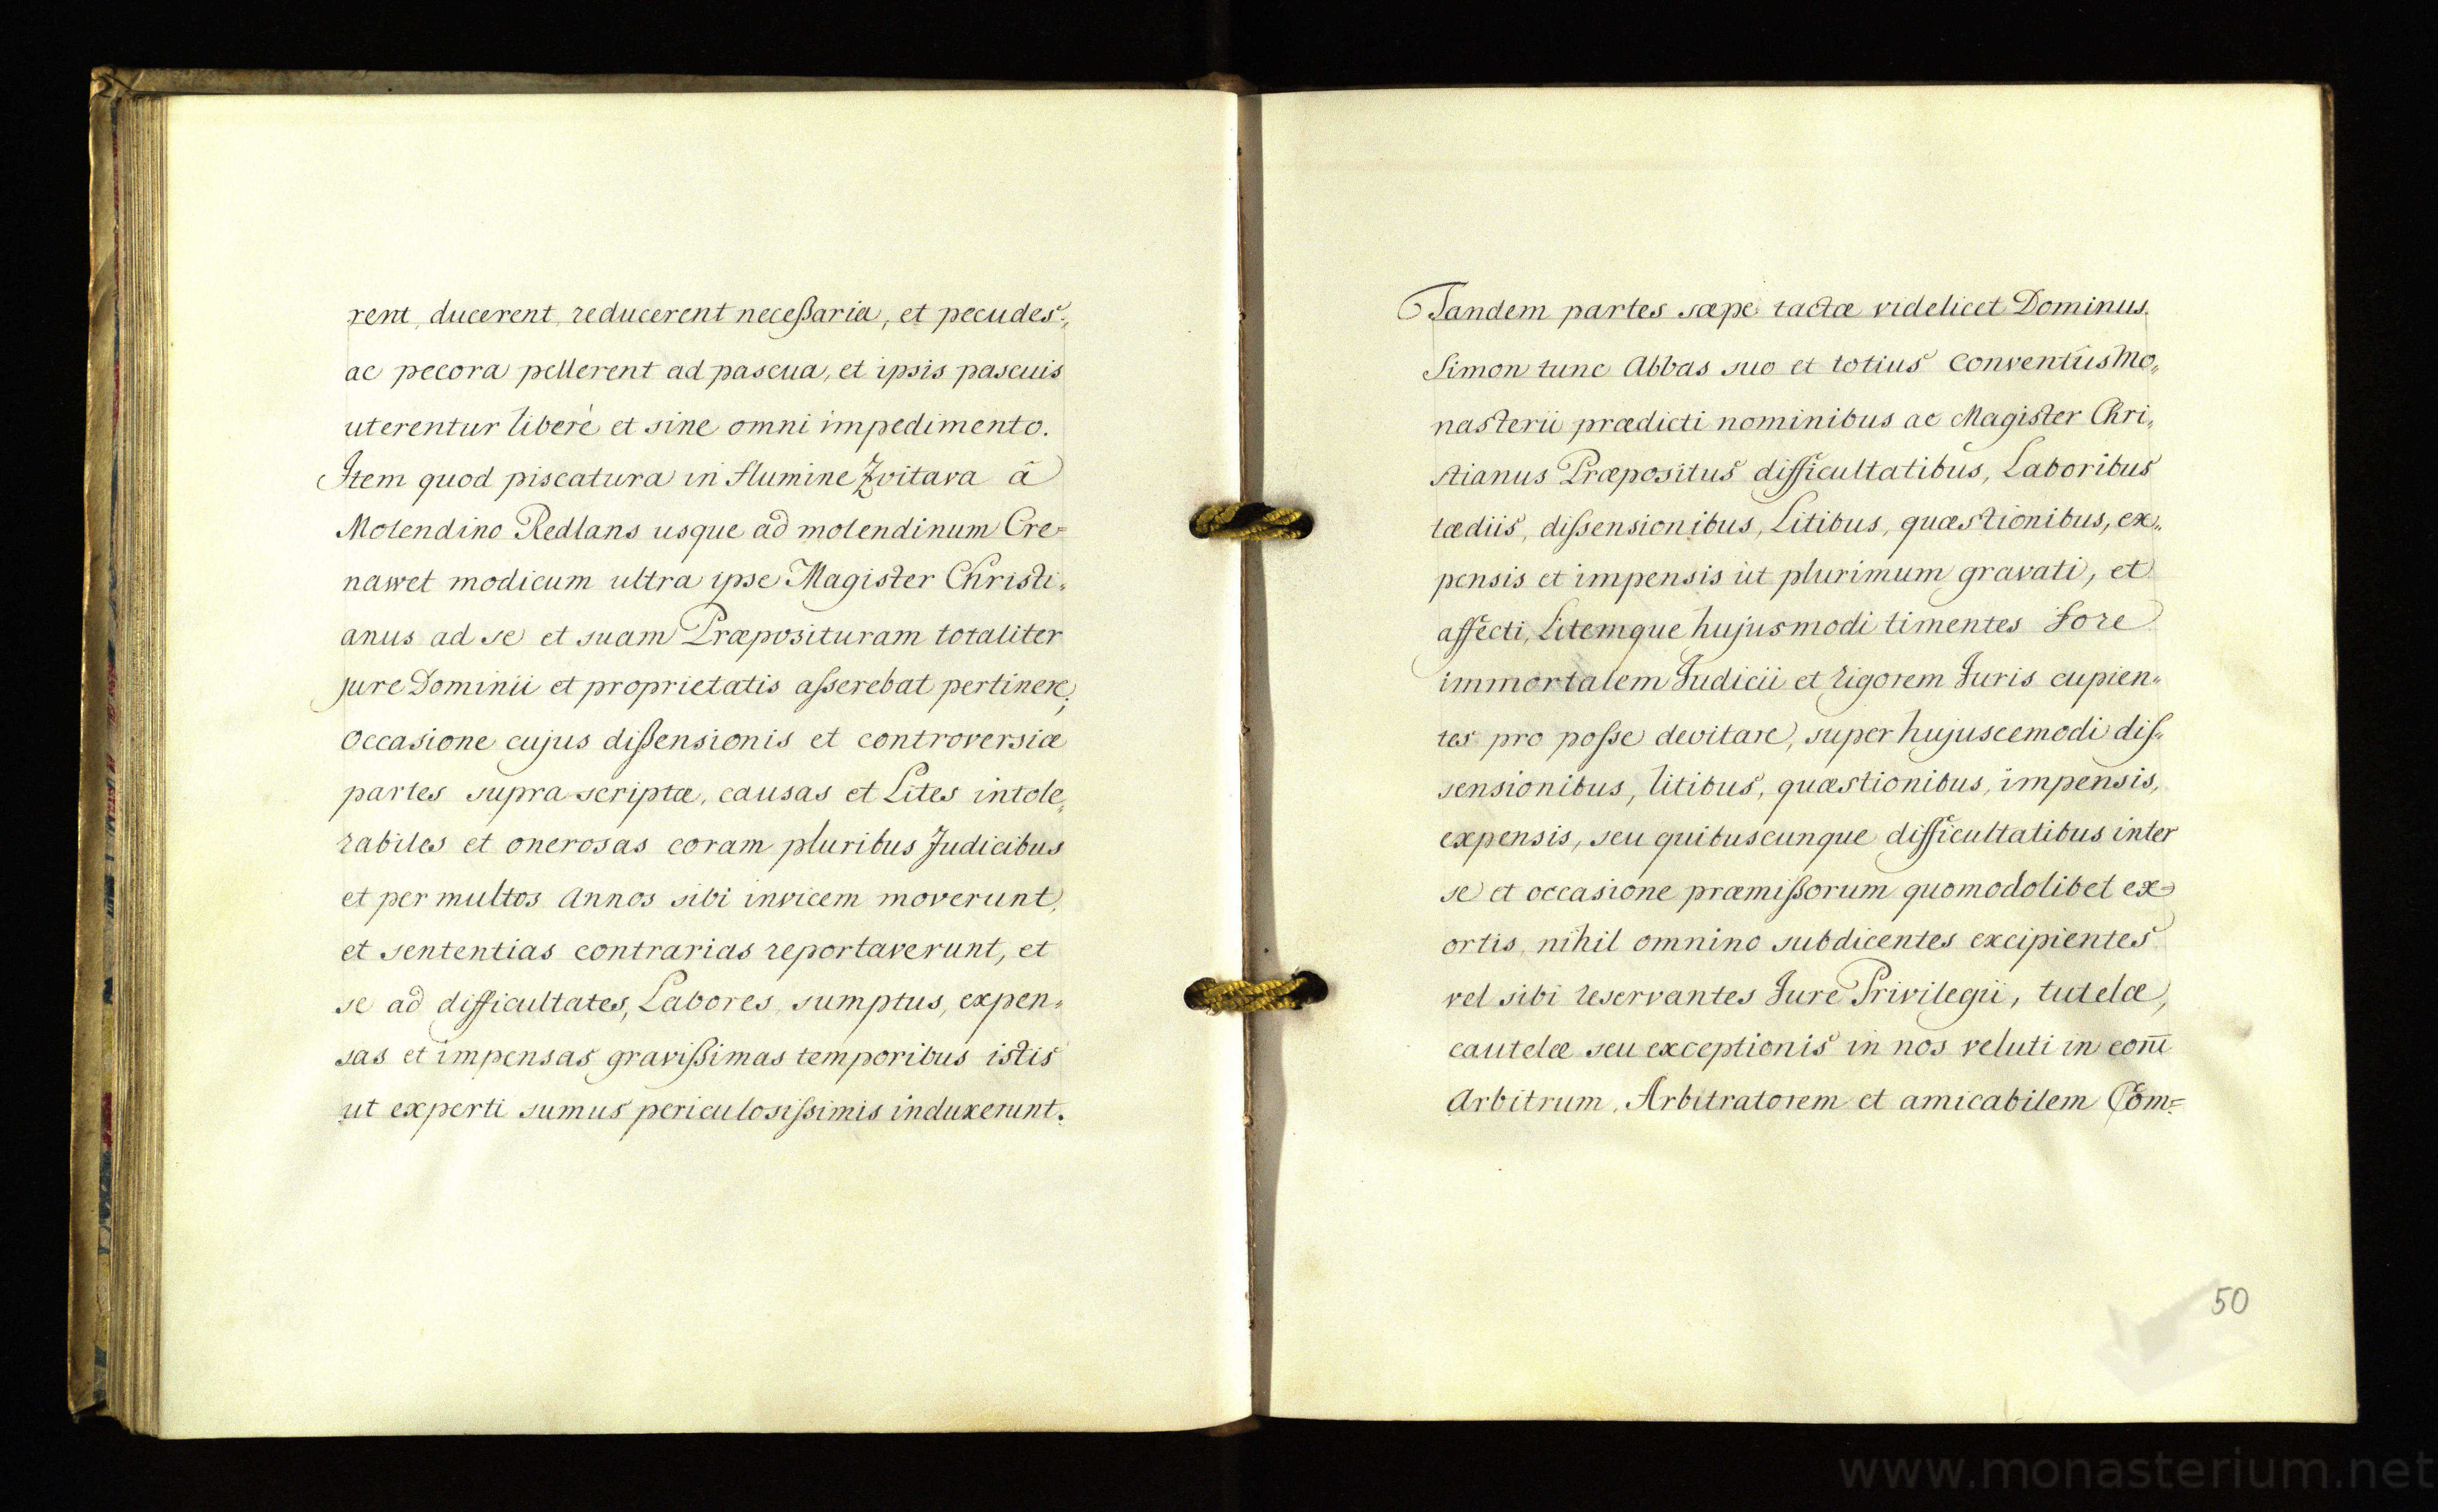 rent, ducerent, reducerent neceßaria, et pecudes„
ac pecora pellerent ad pascua, et ipsis pascuis
uterentur liberè et sine omni impedimento.
Item quod piscatura in flumine Zvitava â
Molendino Redlans usque ad molendinum Cre=
nawet modicum ultra ipse Magister Christi„
anus ad se et suam Præposituram totaliter
jure Dominii et proprietatis aſserebat pertinere;
Occasione cujus dißensionis et controversiæ
partes supra scriptæ, causas et Lites intole„
rabiles et onerosas coram pluribus Judicibus
et per multos Annos sibi invicem moverunt,
et sententias contrarias reportaverunt, et
se ad difficultates, Labores, sumptus, expen„
sas et impensas gravißimas temporibus istis
ut experti sumus periculosiſsimis induxerunt.
Tandem partes sæpe tactæ videlicet Dominus.
Simon tunc Abbas suo et totius Conventûs Mo„
nasterii prædicti nominibus ac Magister Chri„
stianus Præpositus difficultatibus, Laboribus
tædiis, diſsensionibus, Litibus, quæstionibus, ex„
pensis et impensis ut plurimum gravati, et
affecti, Litemque hujusmodi timentes Fore
immortalem Judicii et rigorem Juris cupien„
tes pro poſse devitare, super hujuscemodi diſ„
sensionibus, litibus, quæstionibus, impensis,
expensis, seu quibuscunque difficultatibus inter
se et occasione præmißorum quomodolibet ex=
ortis, nihil omnino subdicentes excipientes
vel sibi reservantes Jure Privilegii, tutelæ,
cautelæ seu exceptionis in nos veluti in com̄
Arbitrum, Arbitratorem et amicabilem Com=
50
www.monasterium.net